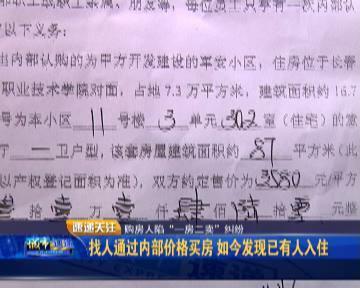 部职工或职工家属、朋友等，每位员工只享有一次内部认
以下义务：
出内部认购的为甲方开发建设的军安小区，住房位于长春
职业技术学院对面，占地7.3万平方米，建筑面积约16.7
号为本小区 11 号楼 3 单元 302 室（住宅）的意
厅 一 卫户型，该套房屋建筑面积约 87 平方米（此
以产权登记面积为准），双方约定售价为 3580 元/平方
拾 壹 万 仟 肆 佰 陆 拾 元
速递关注 购房人陷“一房二卖”纠纷
找人通过内部价格买房 如今发现已有人入住